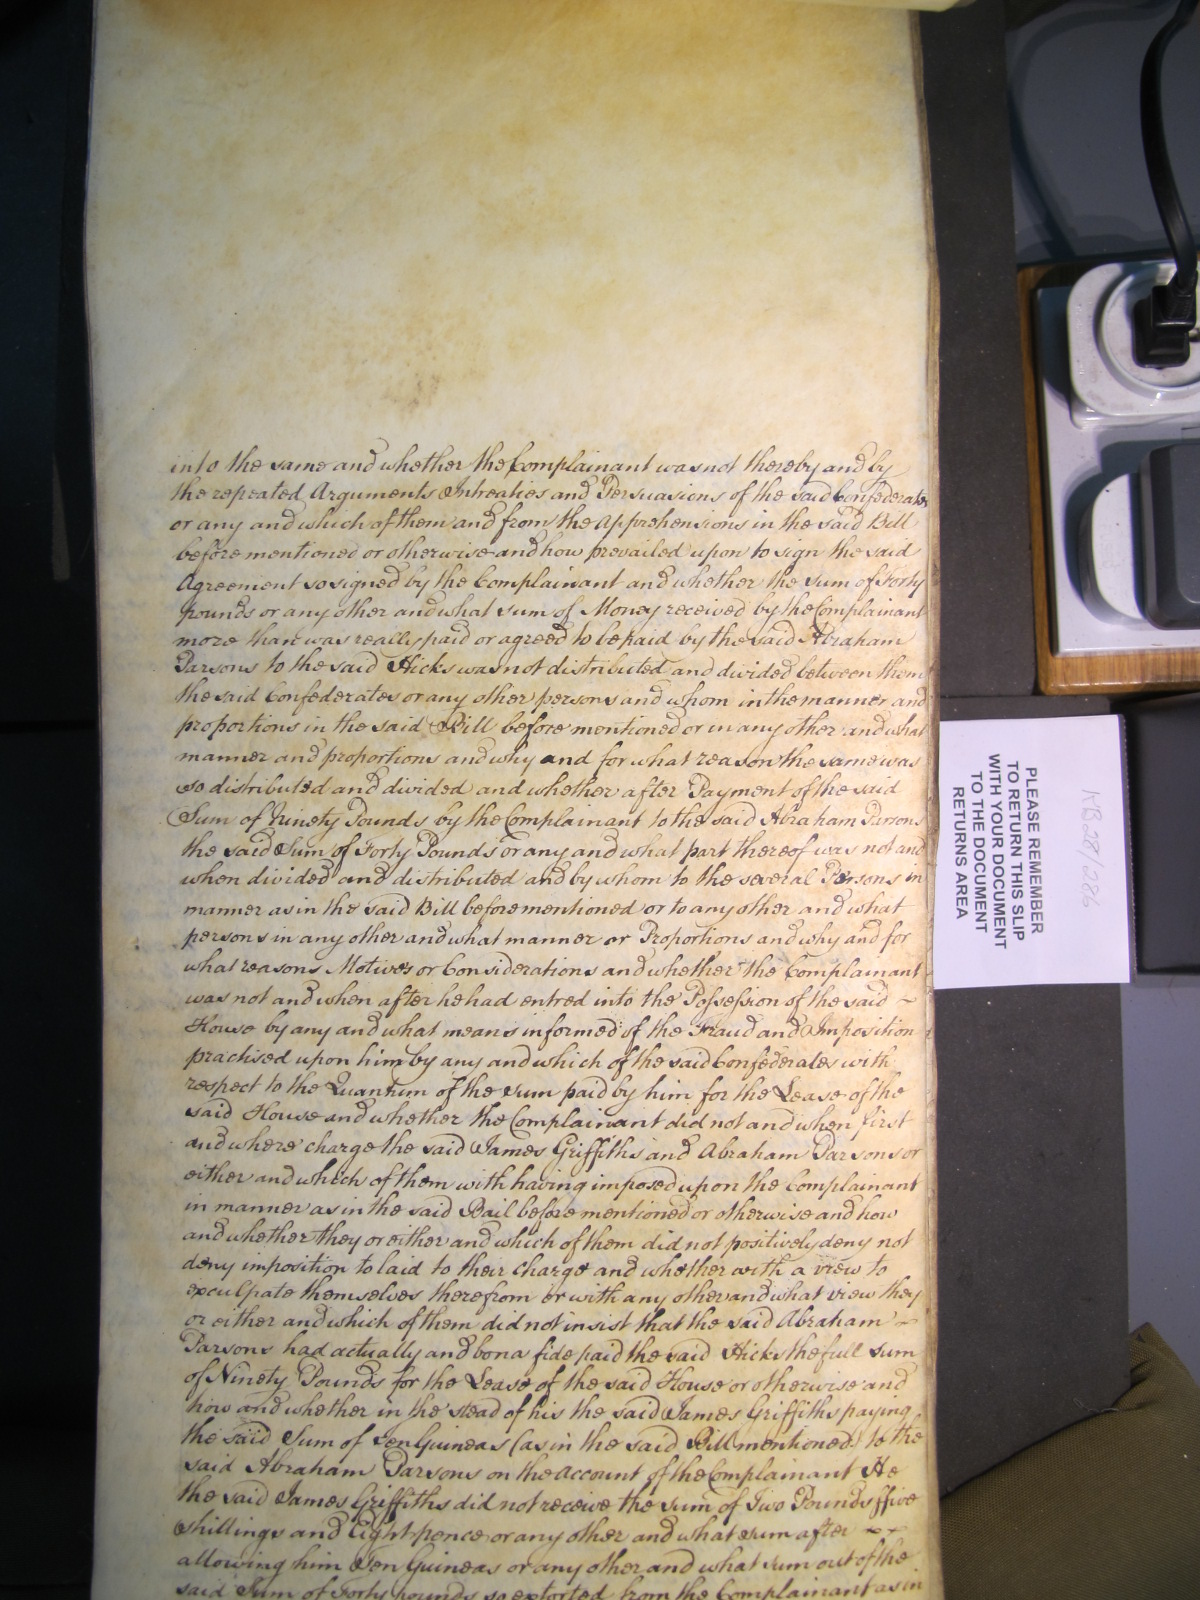 into the same and whether the Complainant was not thereby and by
the repeated Arguments Intreaties and Persuasions of the said Confederates
or any and which of them and from the Apprehensions in the said Bill
before mentioned or otherwise and how prevailed upon to sign the said
Agreement so signed by the Complainant and whether the sum of Forty
pounds or any other and what sum of Money received by the Complainant
more than was really paid or agreed to be paid by the said Abraham
Parsons to the said Hicks was not distributed and divided between them
the said Confederates or any other persons and whom in the manner and
proportions in the said Bill before mentioned or in any other and what
manner and proportions and why and for what reason the same was
so distributed and divided and whether after Payment of the said
Sum of Ninety Pounds by the Complainant to the said Abraham Parsons
the said Sum of Forty Pounds or any and what part thereof was not and
when divided and distributed and by whom to the several Persons in
manner as in the said Bill before mentioned or to any other and what
persons in any other and what manner or Proportions and why and for
what reasons Motives or Considerations and whether the Complainant
was not and when after he had entred into the Possession of the said ~
House by any and what means informed of the Fraud and Imposition
practised upon him by any and which of the said Confederates with
respect to the Quantum of the sum paid by him for the Lease of the
said House and whether the Complainant did not and when first
and where charge the said James Griffiths and Abraham Parsons or
either and which of them with having imposed upon the Complainant
in manner as in the said Bail before mentioned or otherwise and how
and whether they or either and which of them did not positively deny not
deny imposition to laid to their charge and whether with a view to
exculpate themselves therefrom or with any other and what view they
or either and which of them did not insist that the said Abraham ~
Parsons had actually and bona fide paid the said Hicks the full sum
of Ninety Pounds for the Lease of the said House or otherwise and
how and whether in the stead of his the said James Griffiths paying
the said Sum of Ten Guineas (as in the said Bill mentioned) to the
said Abraham Parsons on the Account of the Complainant He
the said James Griffiths did not receive the sum of Two Pounds ffive
Shillings and Eight pence or any other and what sum after ~ ~
allowing him Ten Guineas or any other and what sum out of the
said Sum of Forty pounds so extorted from the Complainant as in
PLEASE REMEMBER
TO RETURN THIS SLIP
WITH YOUR DOCUMENT
TO THE DOCUMENT
RETURNS AREA
KB28/286